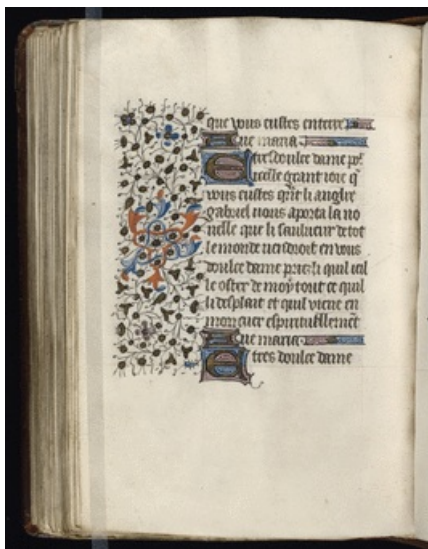 que vous eustes en terre
Aue maria
E tresdoulce dame p̄
icelle grant ioie q̄
vous eustes q̄nt li angle
gabriel uous aporta la no
uelle que li sauluere de tot
le monde uendroit en vous
doulce dame priez li quil ueil
le oster de moy tout ce quil
li desplait et quil viene en
mon cuer espirituellemēt
Aue maria
E tres doulce dame